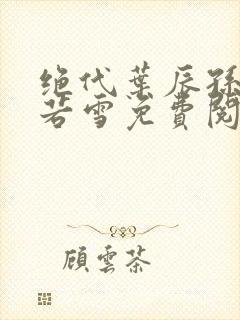 绝代葉辰孫
若雪免費閱
顧雲茶